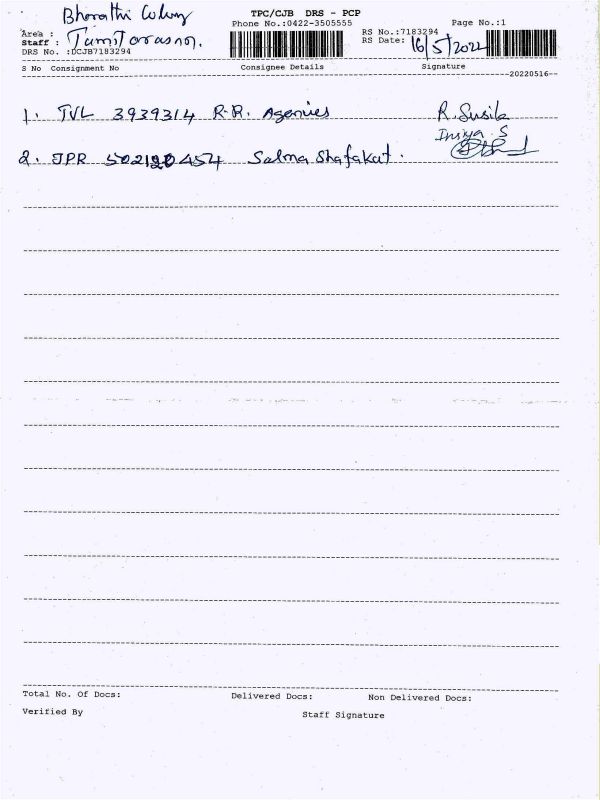 Bharathi Colony
TPC/CJB DRS - PCP
Phone No.:0422-3505555
Page No.:1
Area :
RS No.:7183294
Staff :
RS Date: 16/5/2022
DRS No. :DCJB7183294
S No Consignment No Consignee Details Signature
--20220516--
1. TVL 3939314 R.R. Agencies R. Susila
Insiya S
2. JPR 502120454 Salma Shafakat.
Total No. Of Docs: Delivered Docs: Non Delivered Docs:
Verified By Staff Signature